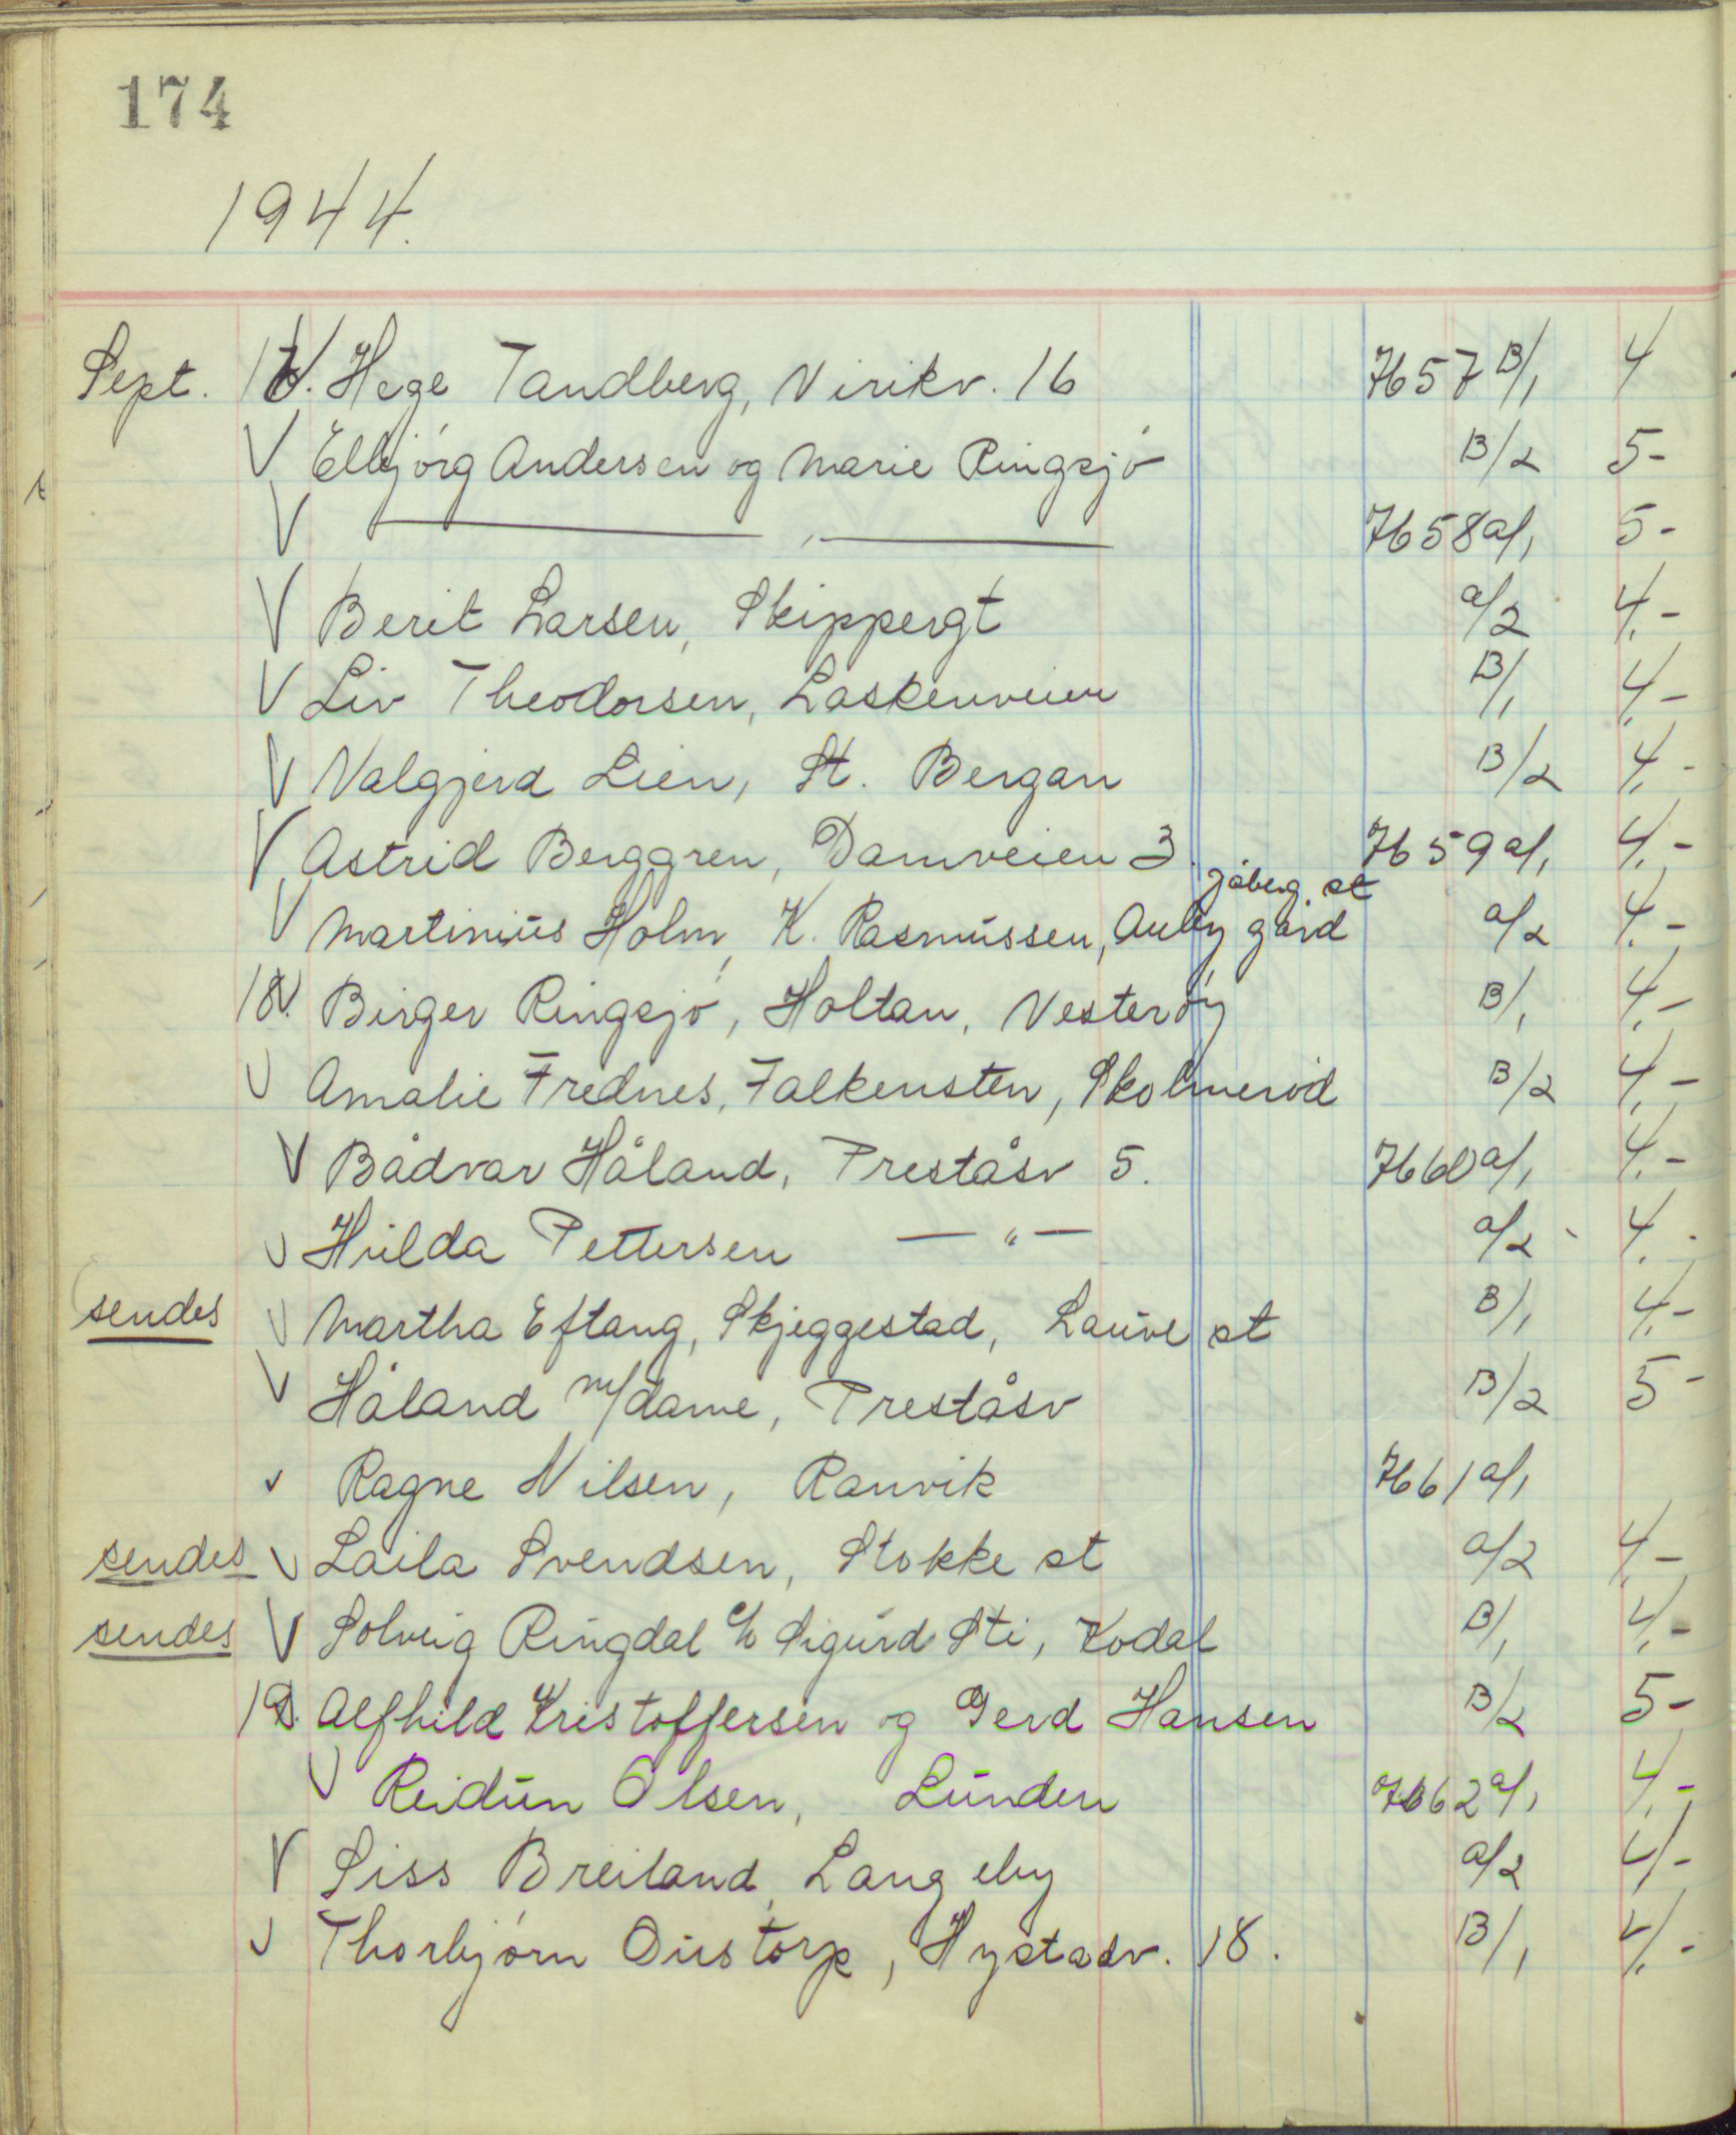 174
1944.
Sept. 16. V Hege Tandberg, Virikv. 16 7657 B/1 4
V Ellbjörg Andersen og Marie Ringsjö B/2 5-
V ——— , ——— 7658 a/1 5-
V Berit Larsen, Skippergt a/2 4.-
V Liv Theodorsen, Laskenveien B/1 4,-
V Valgjerd Lien, St. Bergan B/2 4.-
V Astrid Berggren, Damveien 3. 7659 a/1 4.-
Jåberg st
V Martinius Holm, K. Rasmussen, Auby gård a/2 4.-
18. V Birger Ringsjö, Holtan, Vesteröy B/1 4.-
V Amalie Frednes, Falkensten, Skolmeröd B/2 4,-
V Bådvar Håland, Preståsv 5. 7660 a/1 4.-
V Hulda Pettersen — " — a/2 4.-
sendes V Martha Eftang, Skjeggestad, Lauve st B/1 4,-
V Håland m/dame, Preståsv B/2 5-
v Ragne Nilsen, Ranvik 7661 a/1
sendes V Laila Svendsen, Stokke st a/2 4,-
sendes V Solveig Ringdal c/o Sigurd Sti, Kodal B/1 4,-
19. V Alfhild Kristoffersen og Gerd Hansen B/2 5-
V Reidun Olsen, Lunden 7662 a/1 4,-
V Siss Breiland, Langeby a/2 4/-
V Thorbjörn Oustorp, Hystadv. 18. B/1 4.-